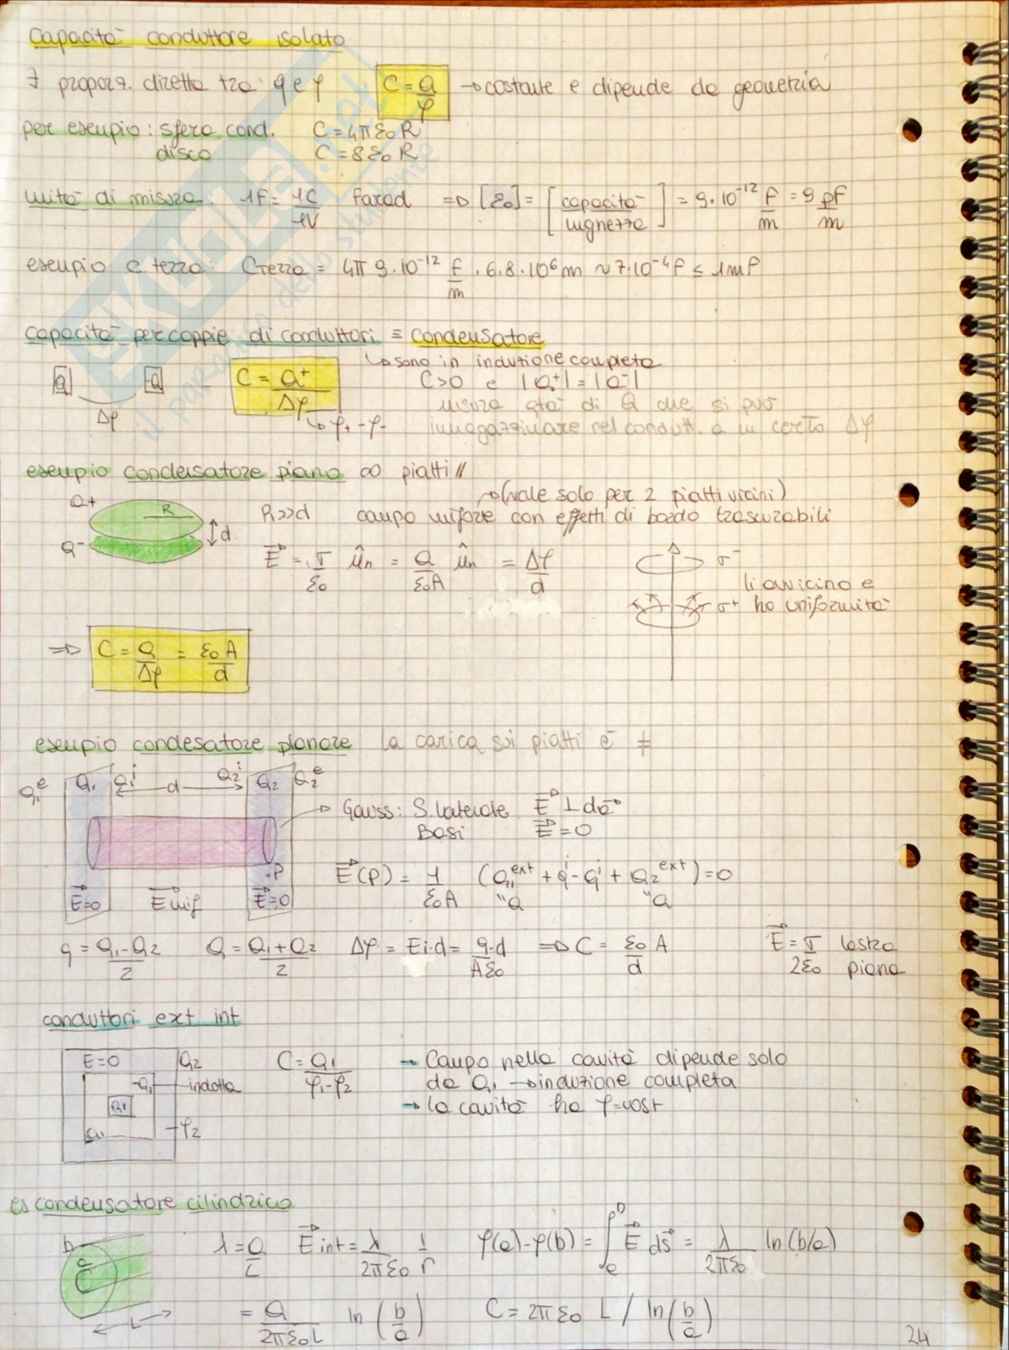 capacità conduttore isolato
∃ proporz. diretta tra q e φ C = Q/φ → costante e dipende da geometria
per esempio: sfera cond. C = 4πε₀R
disco C = 8ε₀R
unità di misura: 1F = 1C/1V Farad ⇒ [ε₀] = [capacità/lunghezza] = 9·10⁻¹² F/m = 9 pF/m
esempio C terra: Cterra = 4π 9·10⁻¹² F/m · 6.8·10⁶ m ~ 7·10⁻⁴ F ≤ 1mF
capacità per coppie di conduttori ≡ condensatore
↳ sono in induzione completa
Q Q C = Q⁺/Δφ C>0 e |Q⁺| = |Q⁻|
Δφ ↳ φ₊ - φ₋
misura qtà di Q che si può
immagazzinare nel condutt. a un certo Δφ
esempio condensatore piano ∞ piatti //
→ (vale solo per 2 piatti vicini)
Q+ R d Q- R>>d campo uniforme con effetti di bordo trascurabili
E = σ/ε₀ ûn = Q/ε₀A ûn = Δφ/d
σ⁻ li avvicino e
σ⁺ ho uniformità
⇒ C = Q/Δφ = ε₀A/d
esempio condesatore planare la carica sui piatti è ≠
Q₁ᵉ Q₁ Q₁ⁱ d Q₂ⁱ Q₂ Q₂ᵉ
→ Gauss: S. laterale E ⊥ dσ
Basi E = 0
.P E(P) = 1/ε₀A (Q₁ᵉˣᵗ + qⁱ - qⁱ + Q₂ᵉˣᵗ) = 0
E=0 E unif E=0 "Q "Q
q = Q₁-Q₂/2 Q = Q₁+Q₂/2 Δφ = Ei·d = q·d/Aε₀ ⇒ C = ε₀A/d E = σ/2ε₀ lastra piana
conduttori ext int
E=0 Q₂ C = Q₁/φ₁-φ₂ → Campo nella cavità dipende solo
-Q₁ indotta da Q₁ → induzione completa
Q₁ → la cavità ha φ=cost
φ₂
es condensatore cilindrico
b a L
λ = Q/L E int = λ/2πε₀ 1/r φ(a)-φ(b) = ∫ₐᵇ E ds = λ/2πε₀ ln(b/a)
= Q/2πε₀L ln(b/a) C = 2πε₀ L / ln(b/a)
24